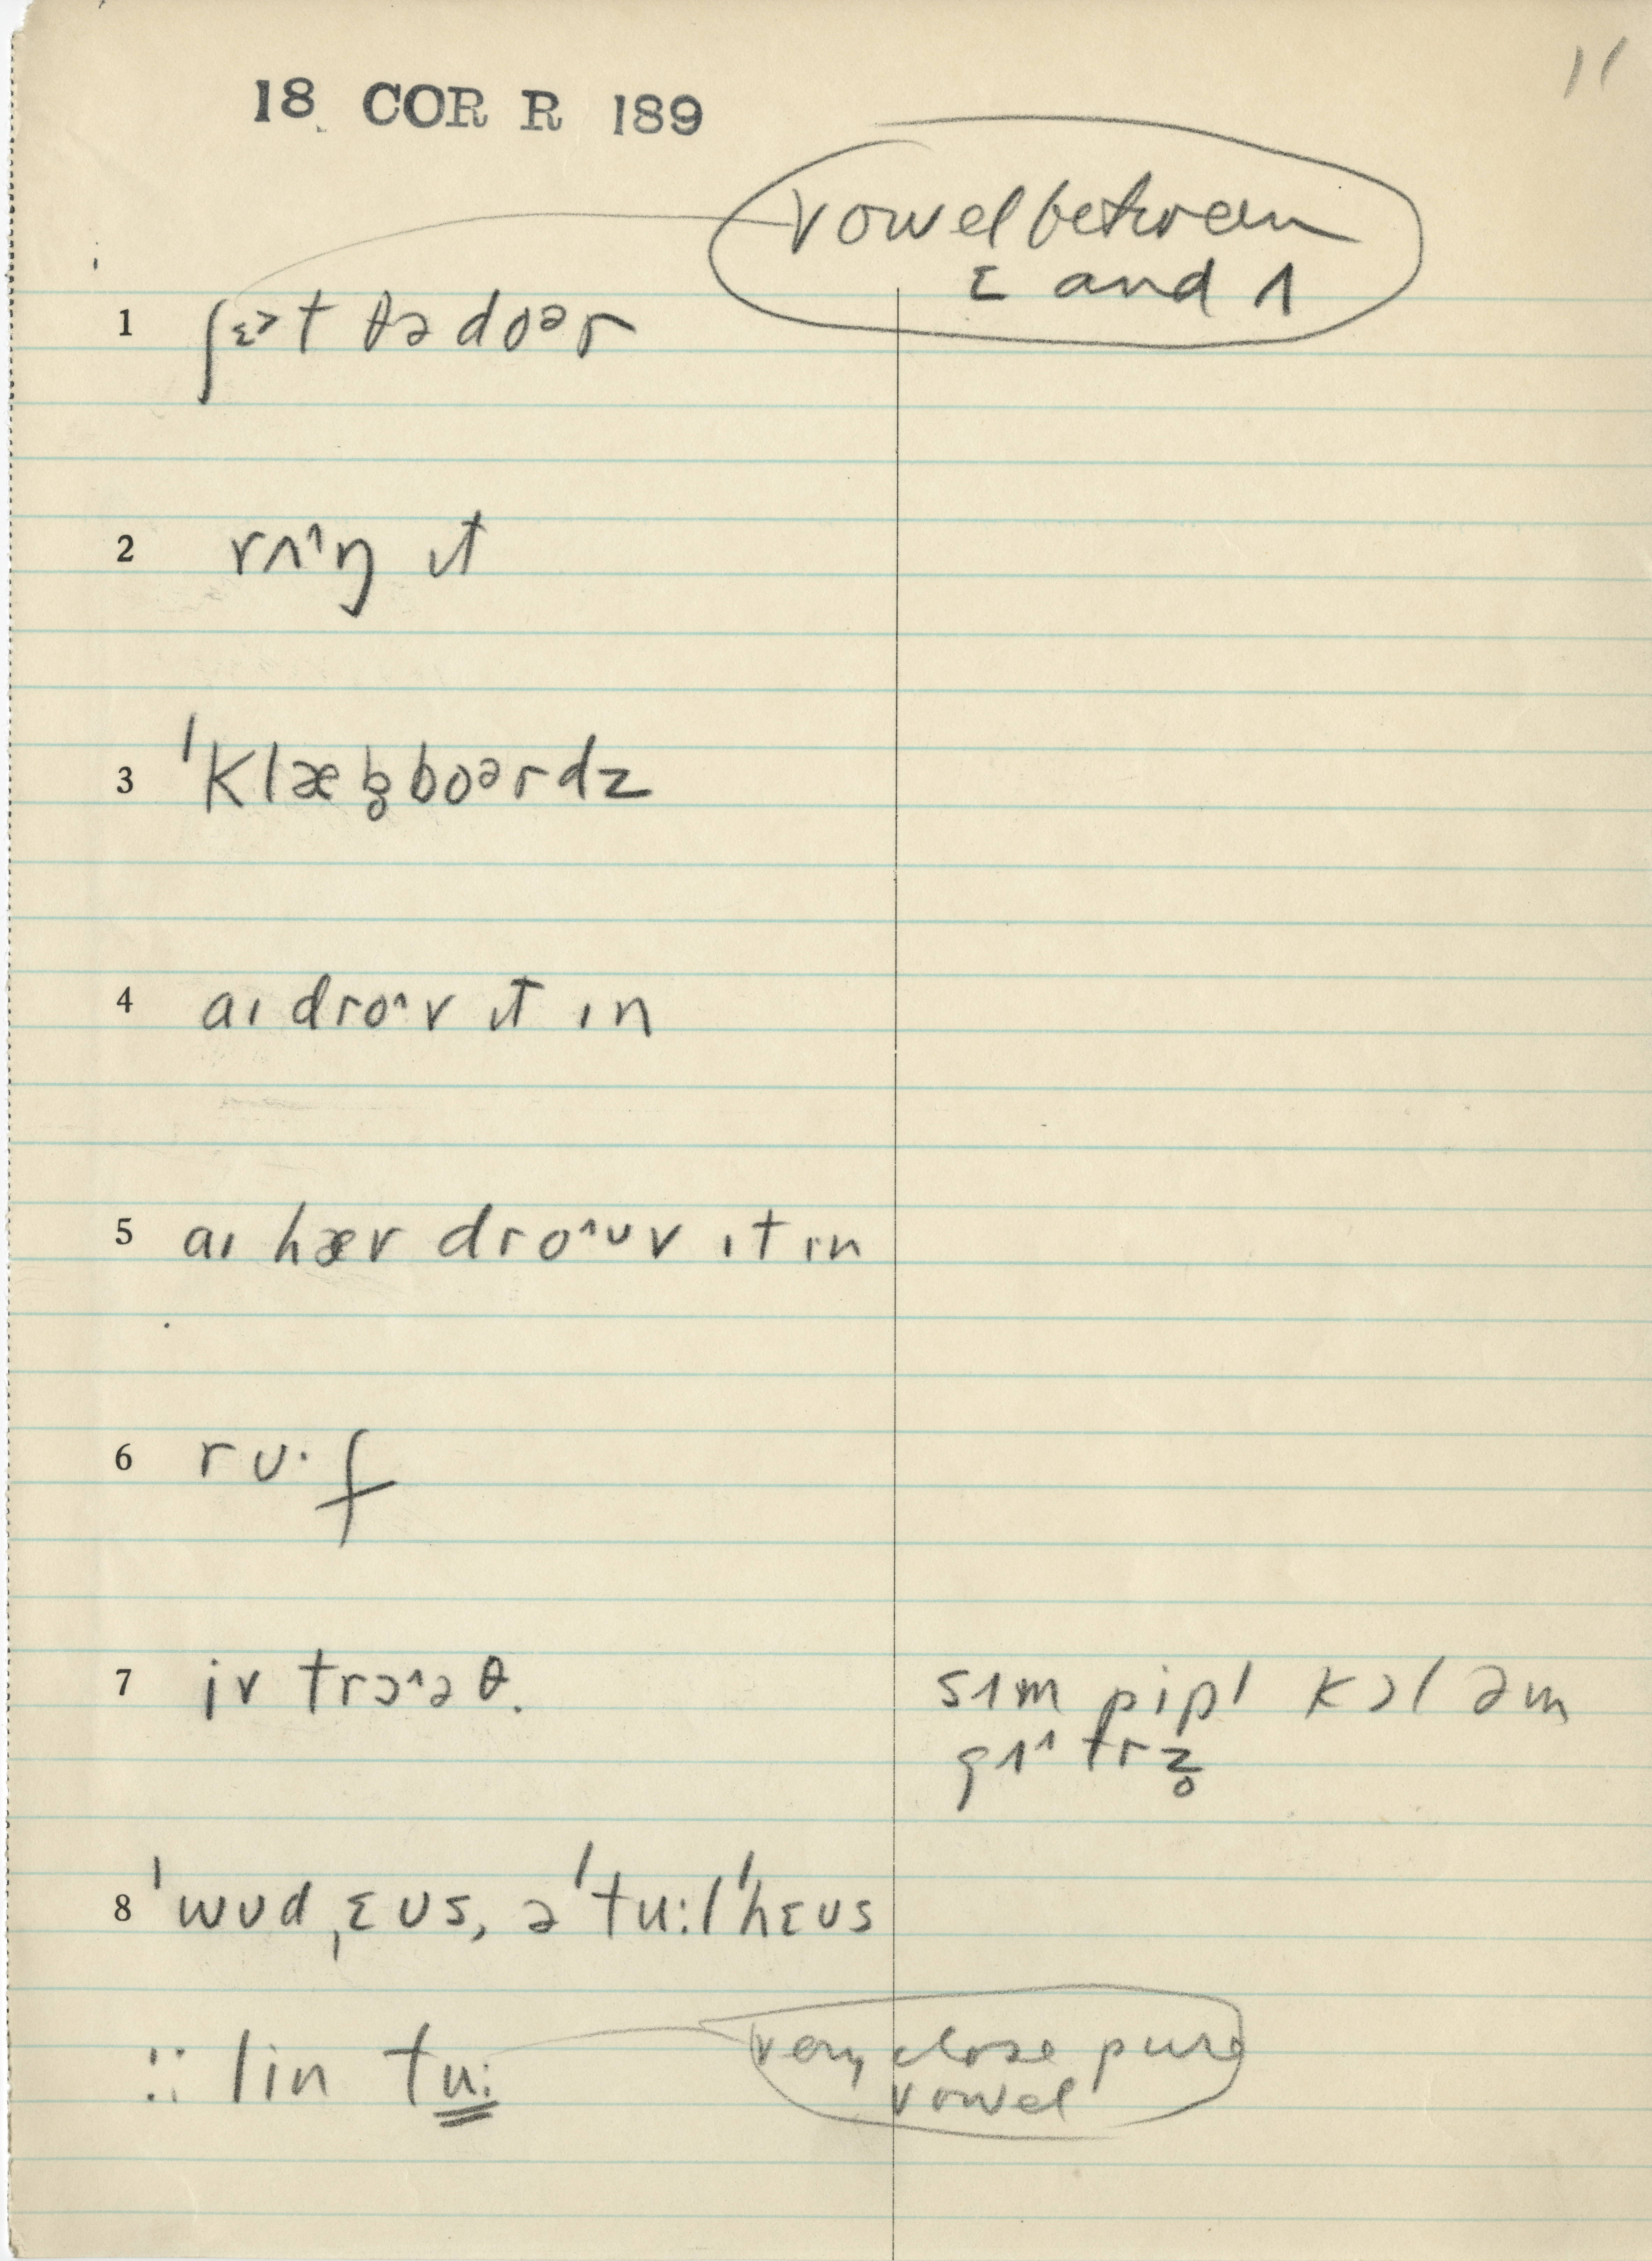 11
18 COR R 189
vowel between
ɛ and ʌ
1 ʃɛ>t ðə doər
2 rʌ^ŋ ɪt
3 ˈklæb̥boərdz
4 aɪ dro^v ɪt ɪn
5 aɪ hæv dro^ʊv ɪt ɪn
6 rʊ·f
7 iv trɔ^əθ.
sɪm pipl kɔl əm
gʌ^trz̥
8 ˈwʊdˌɛʊs, əˈtu:lˈhɛʊs
:: lin tu:
very close pure
vowel